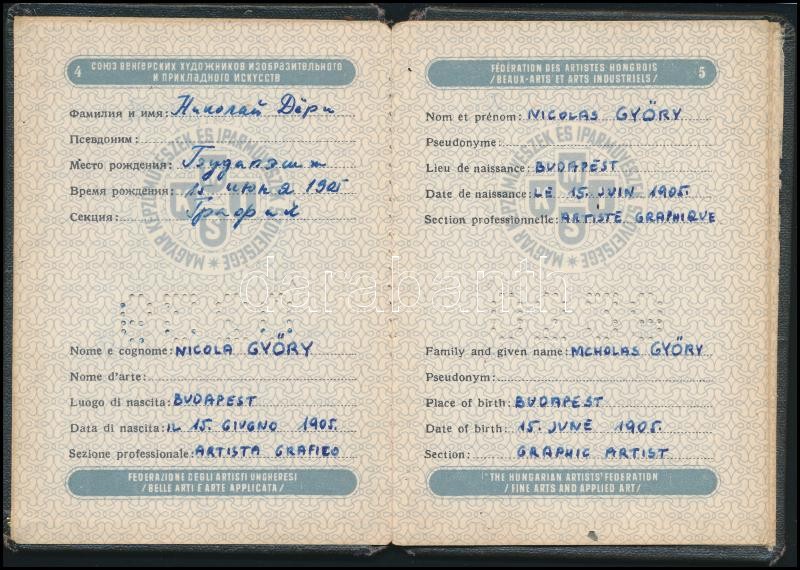 4
СОЮЗ ВЕНГЕРСКИХ ХУДОЖНИКОВ ИЗОБРАЗИТЕЛЬНОГО
И ПРИКЛАДНОГО ИСКУССТВ
Фамилия и имя: Николай Дёри
Псевдоним:
Место рождения: Будапэшт
Время рождения: 15 июня 1905
Секция: График
Nome e cognome: NICOLA GYŐRY
Nome d'arte:
Luogo di nascita: BUDAPEST
Data di nascita: IL 15. GIUGNO 1905.
Sezione professionale: ARTISTA GRAFICO
FEDERAZIONE DEGLI ARTISTI UNGHERESI
/BELLE ARTI E ARTE APPLICATA/
FÉDÉRATION DES ARTISTES HONGROIS
/BEAUX-ARTS ET ARTS INDUSTRIELS/
5
Nom et prénom: NICOLAS GYŐRY
Pseudonyme:
Lieu de naissance: BUDAPEST
Date de naissance: LE 15. JUIN 1905.
Section professionnelle: ARTISTE GRAPHIQUE
Family and given name: NICHOLAS GYŐRY
Pseudonym:
Place of birth: BUDAPEST
Date of birth: 15. JUNE 1905.
Section: GRAPHIC ARTIST
"THE HUNGARIAN ARTISTS' FEDERATION
/FINE ARTS AND APPLIED ART/
MAGYAR KÉPZŐMŰVÉSZEK ÉS IPARMŰVÉSZEK SZÖVETSÉGE
darabanth